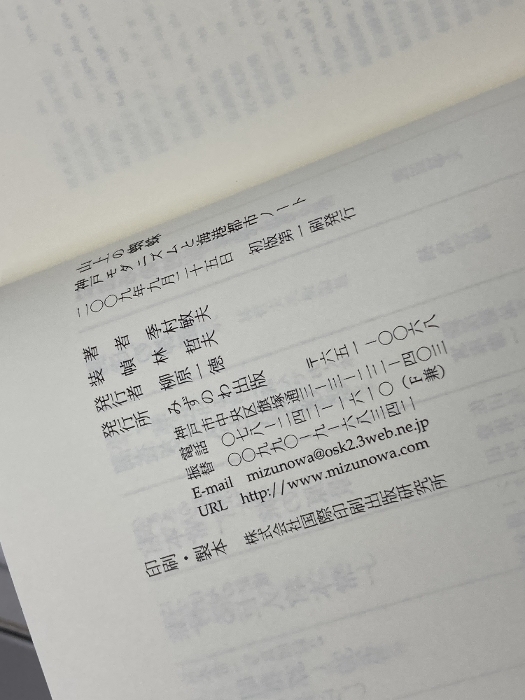 山上の蜘蛛
神戸モダニズムと海港都市ノート
二〇〇九年九月二十五日　初版第一刷発行
著　者　季村敏夫
装　幀　林　哲夫
発行者　柳原一徳
発行所　みずのわ出版
神戸市中央区旗塚通三-三-二二-四〇三
〒六五一-〇〇六八
電話　〇七八-二四二-一六一〇（F兼）
振替　〇〇九九〇-九-六八三四二
E-mail　mizunowa@osk2.3web.ne.jp
URL　http://www.mizunowa.com
印刷・製本　株式会社国際印刷出版研究所